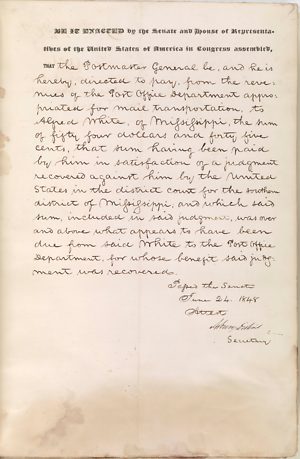 BE IT ENACTED by the Senate and House of Representa-
tives of the United States of America in Congress assembled,
THAT the Postmaster General be, and he is
hereby, directed to pay, from the reve-
nues of the Post Office Department appro-
priated for mail transportation, to
Alfred White, of Mississippi, the sum
of fifty four dollars and forty five
cents, that sum having been paid
by him in satisfaction of a judgment
recovered against him by the United
States in the district court for the southern
district of Mississippi, and which said
sum, included in said judgment, was over
and above what appears to have been
due from said White to the Post Office
Department, for whose benefit said judg-
ment was recovered.
Passed the Senate
June 24. 1848
Attest
Secretary